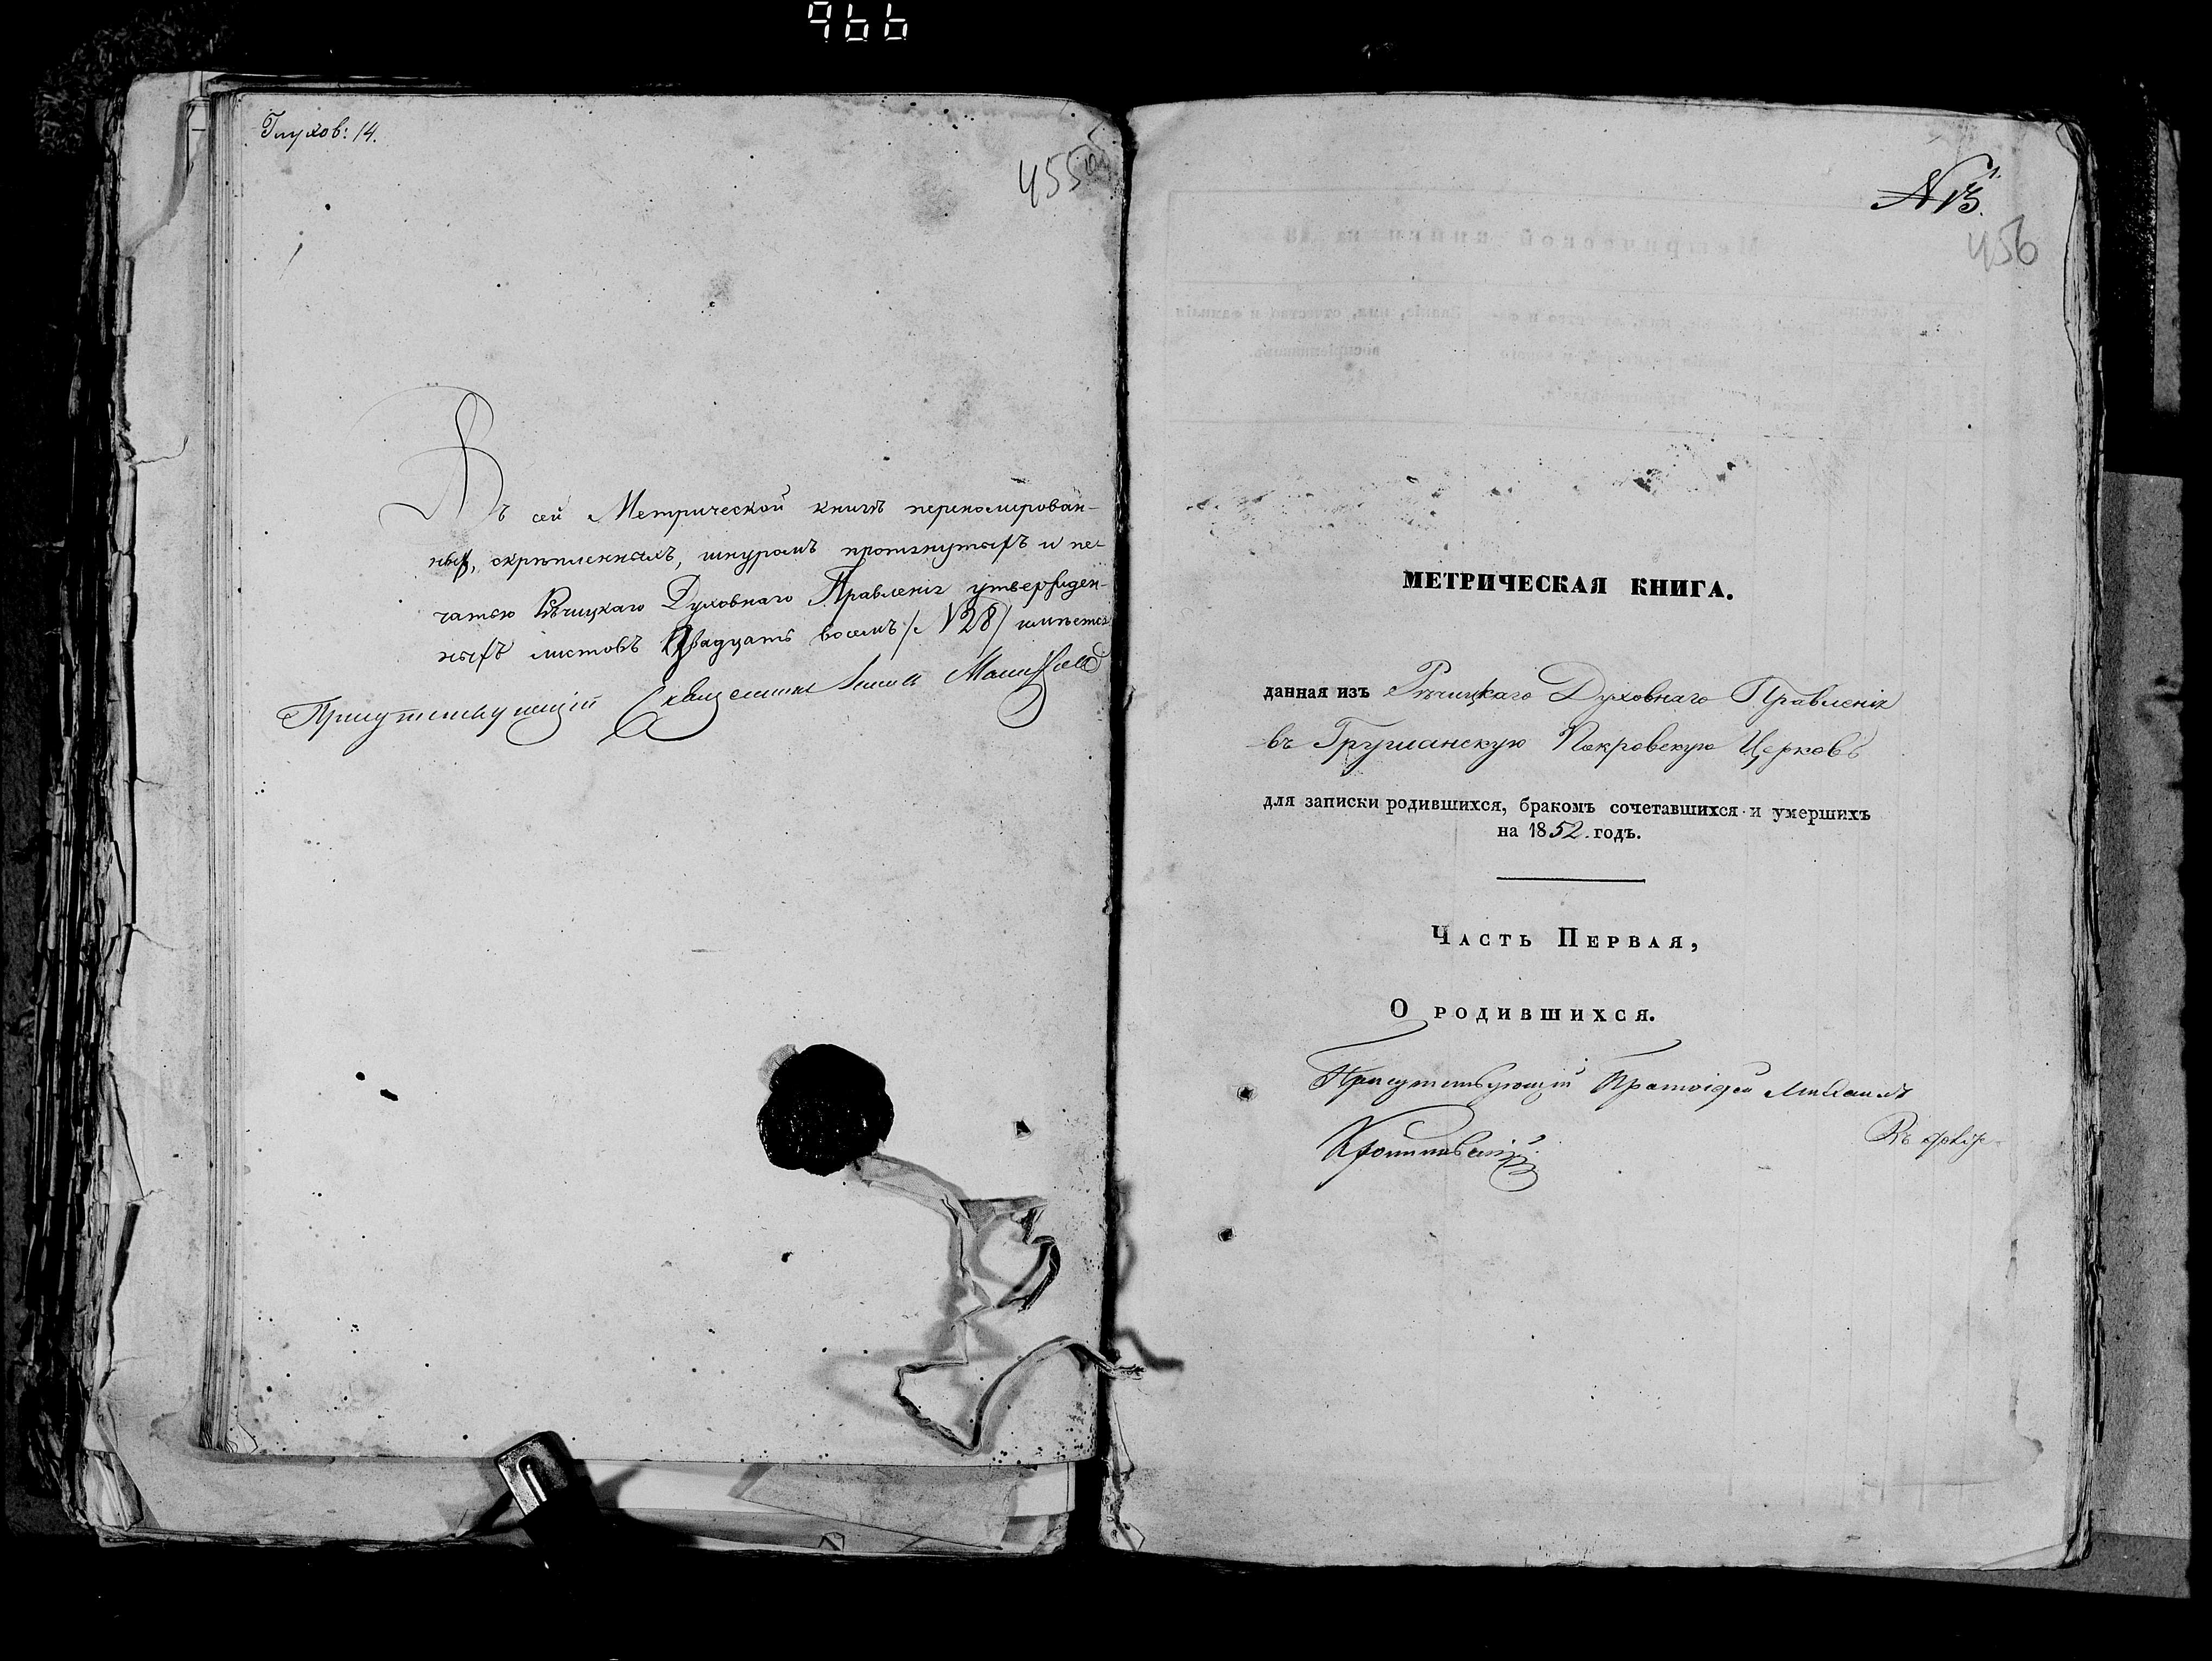 966
Глухов: 14.
455 об
Въ сей Метрической книгѣ перенамерован-
ных, скрѣпленныхъ, шнуромъ протянутыхъ и пе-
чатью Рѣчицкаго Духовнаго Правленія утвержден-
ныхъ листовъ Двадцать восемь /: N28 / имѣется
Присутствующій Священникъ
1.
N 13.
456
МЕТРИЧЕСКАЯ КНИГА.
данная изъ Рѣчицкаго Духовнаго Правленія
въ Грушанскую Покровскую Церковь
для записки родившихся, бракомъ сочетавшихся и умершихъ
на 1852. годъ.
Часть Первая,
О родившихся.
Присутствующій Протоіерей Михаилъ